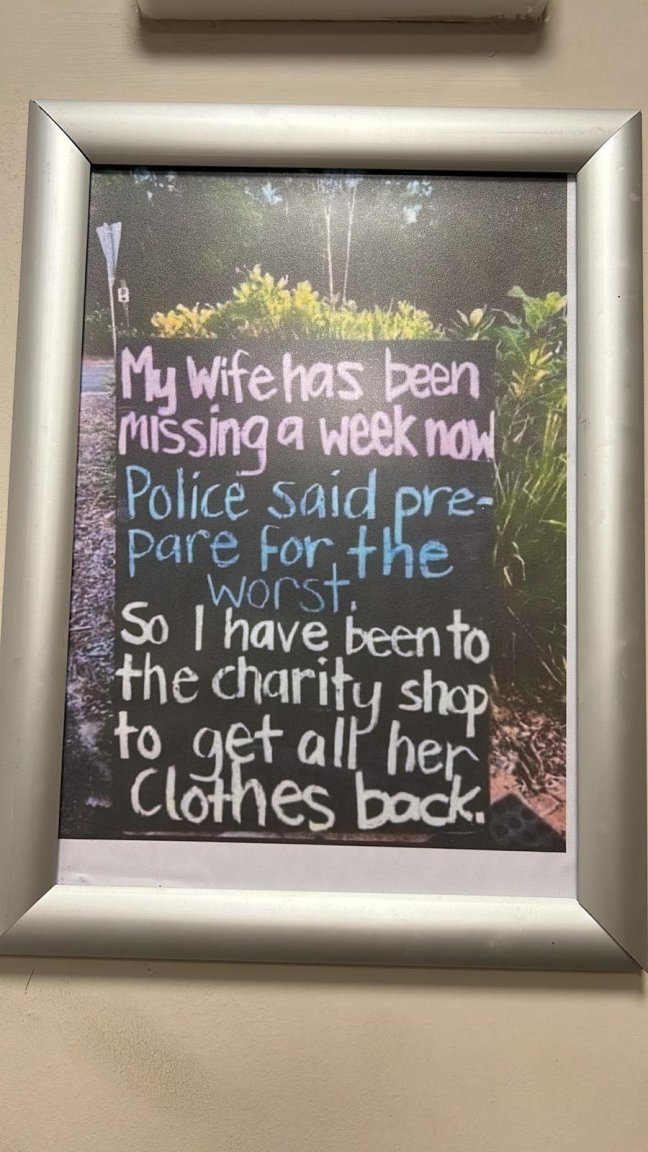 My Wife has been
missing a week now
Police said pre-
pare for the
worst.
So I have been to
the charity shop
to get all her
Clothes back.